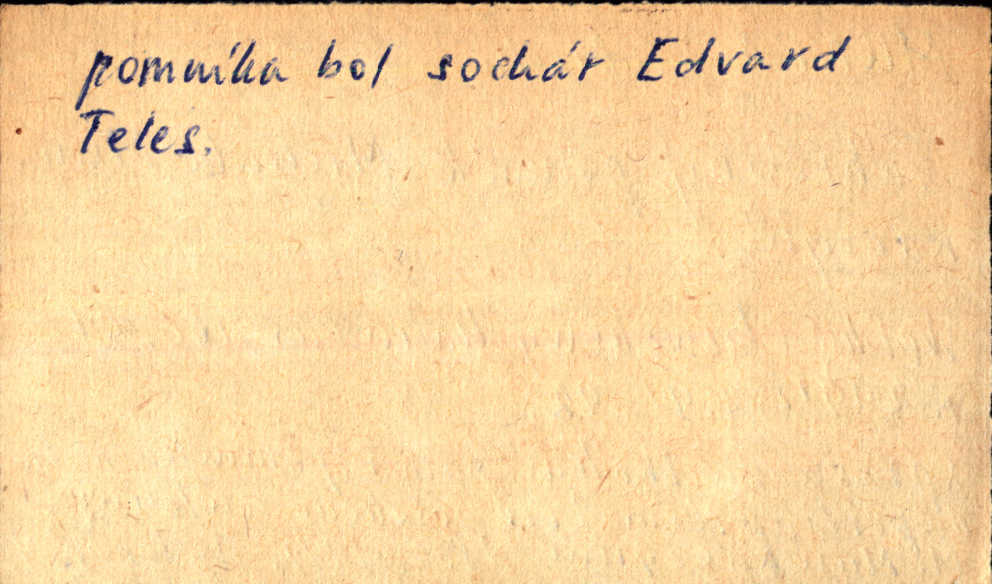 pomníka bol sochár Edvard
Teles.